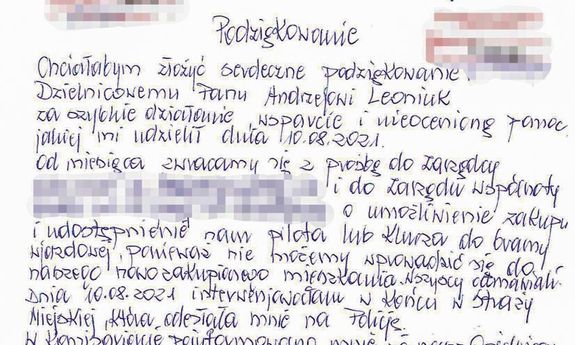 Podziękowanie
Chciałabym złożyć serdeczne podziękowanie
Dzielnicowemu Panu Andrzejowi Leoniuk
za szybkie działanie, wsparcie i nieocenioną pomoc
jakiej mi udzielił dnia 10.08.2021.
Od miesiąca zwracamy się z prośbą do zarządcy
i do zarządu wspólnoty
o umożliwienie zakupu
i udostępnienie nam pilota lub klucza do bramy
wjazdowej, ponieważ nie możemy wprowadzić się do
naszego nowo zakupionego mieszkania. Wszyscy odmawiali.
Dnia 10.08.2021 interweniowałam w końcu w Straży
Miejskiej, która odesłała mnie na Policję.
W Komisariacie poinformowano mnie